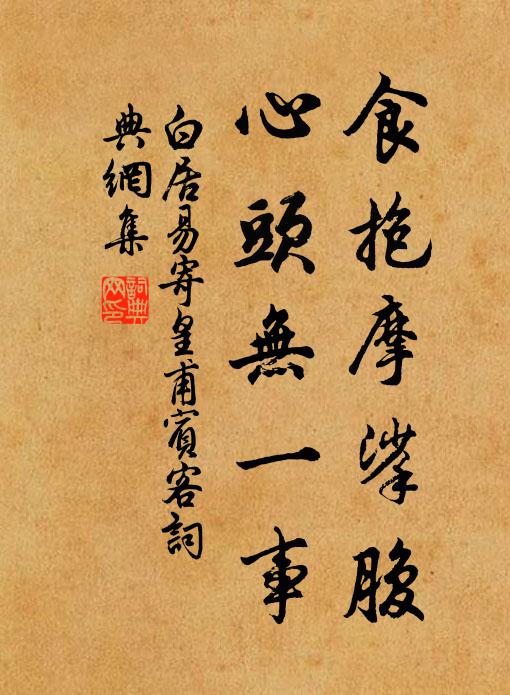 食抱摩挲腹
心頭無一事
白居易寄皇甫賓客詞
典網集
詞典網印